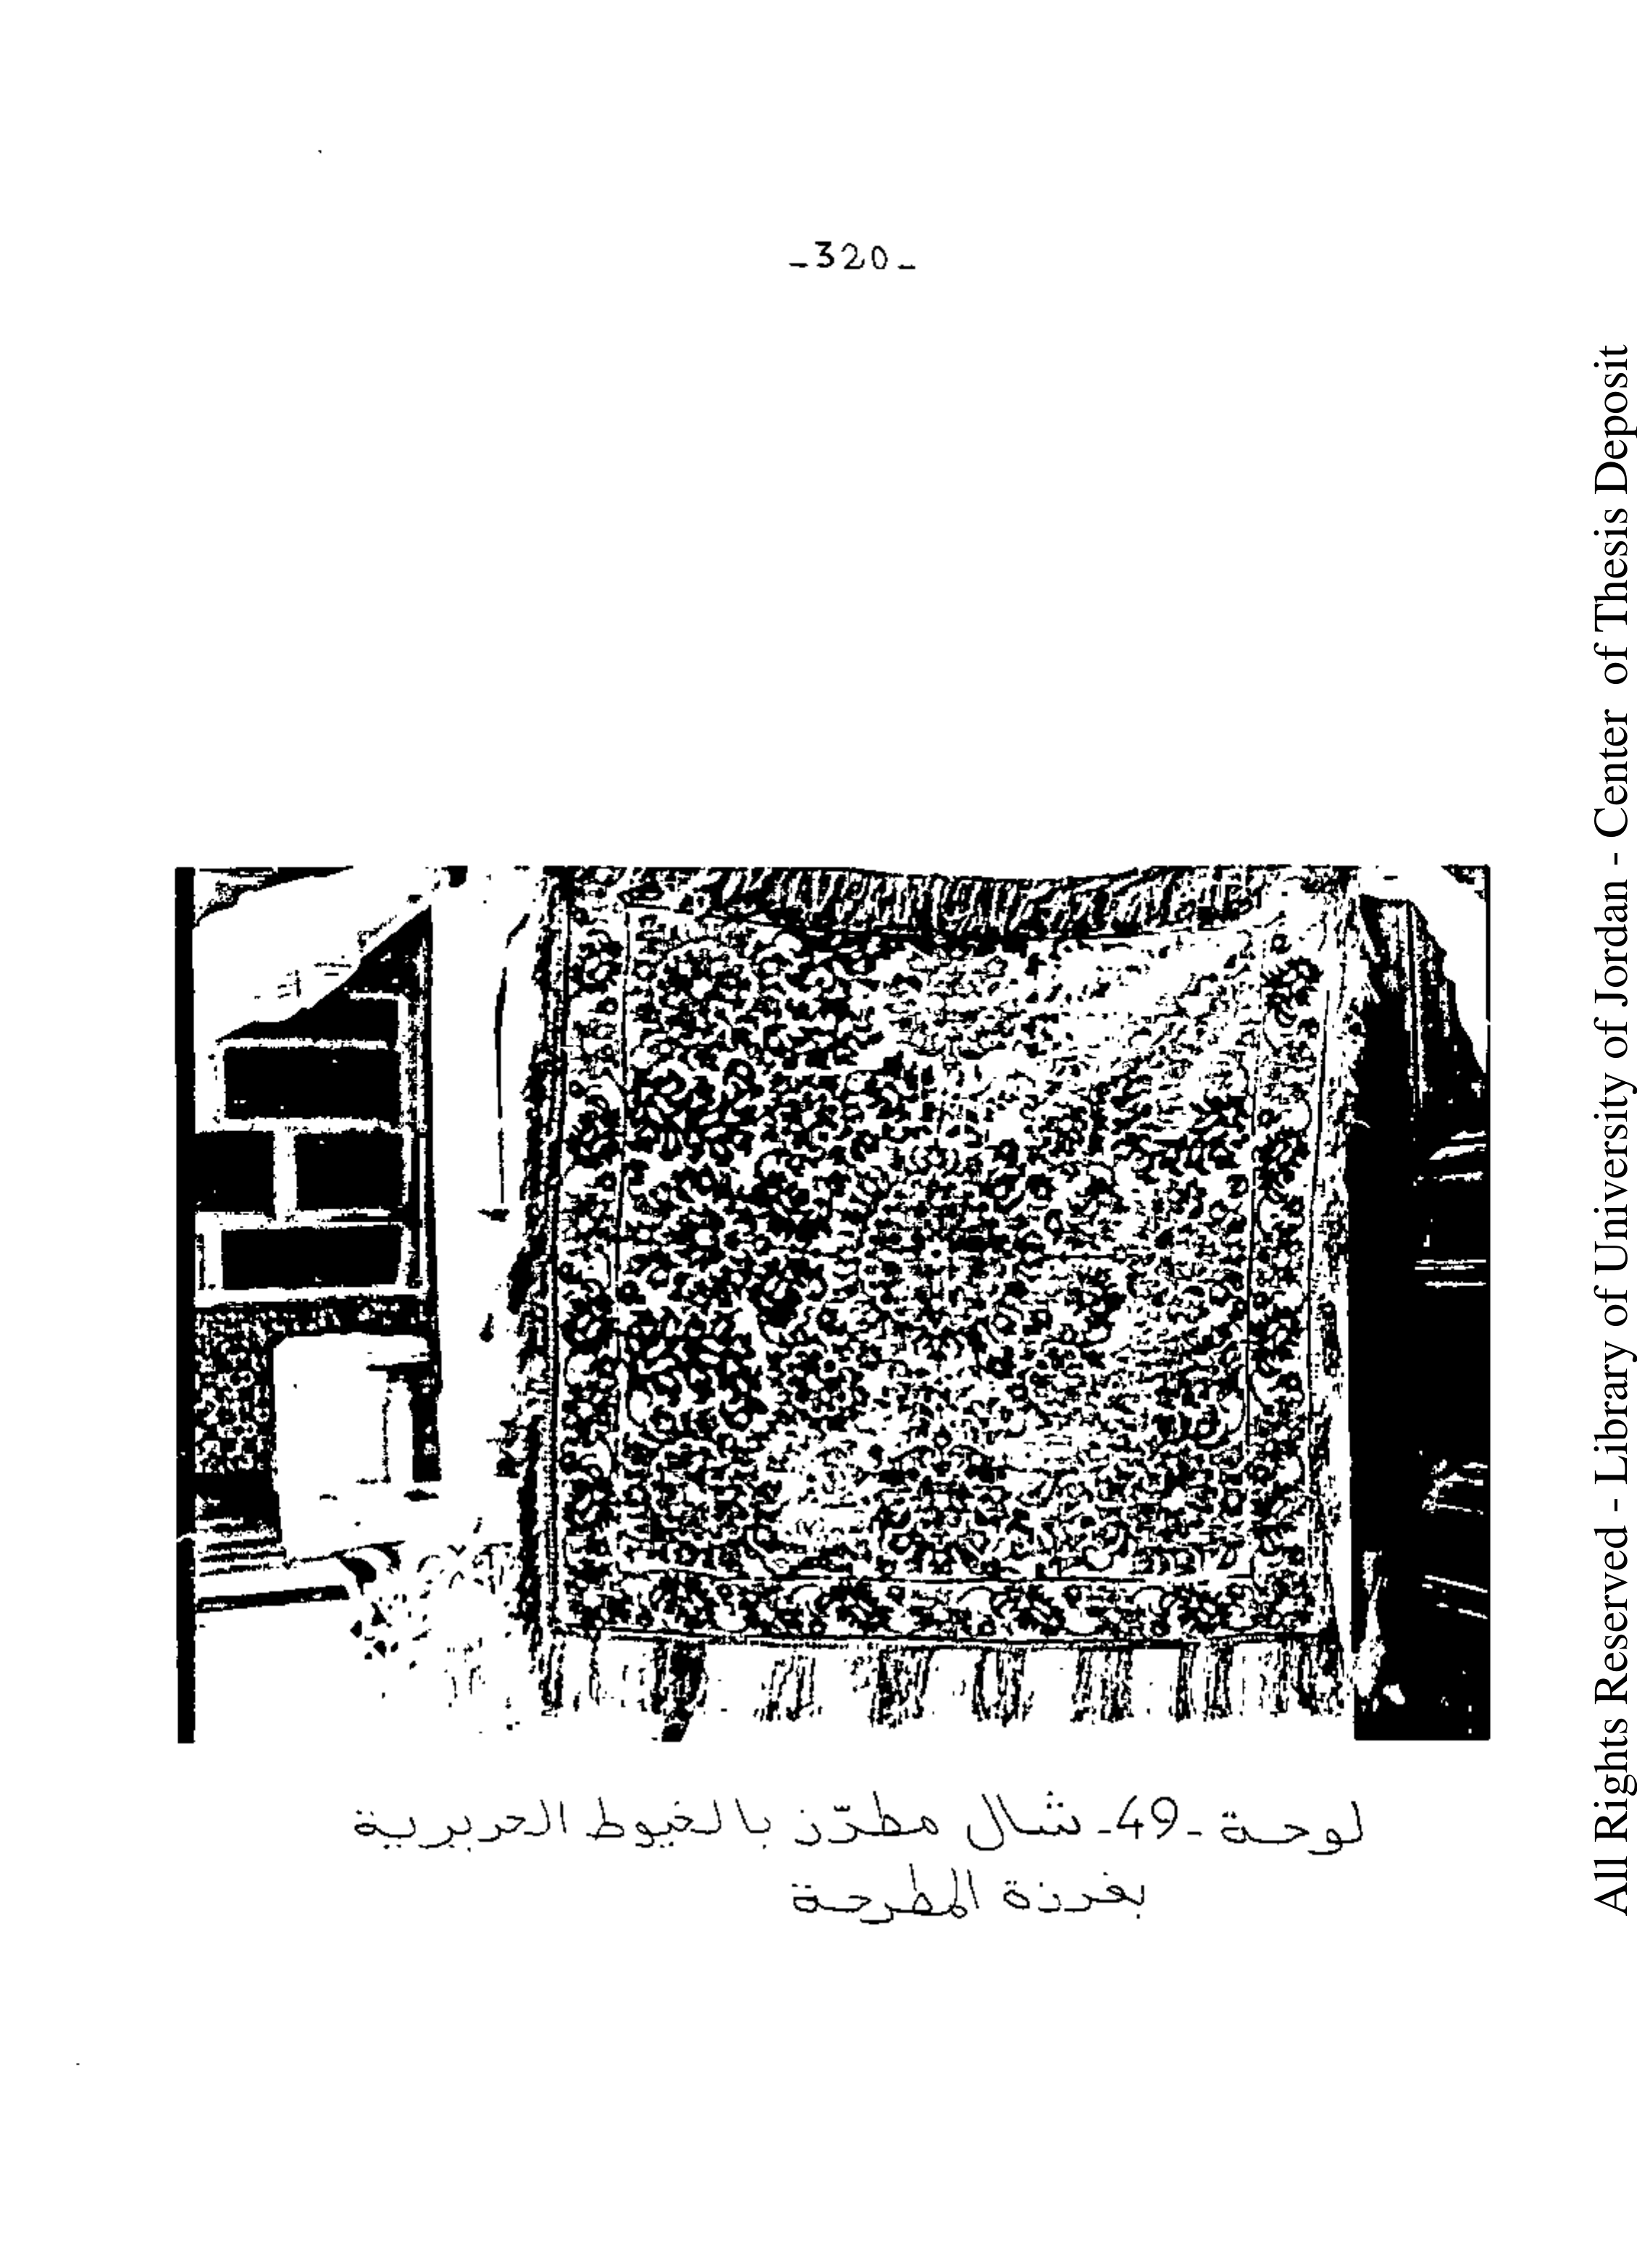 -320-
لوحة -49- شال مطرّز بالخيوط الحريرية
بغرزة المطرحة
All Rights Reserved - Library of University of Jordan - Center of Thesis Deposit